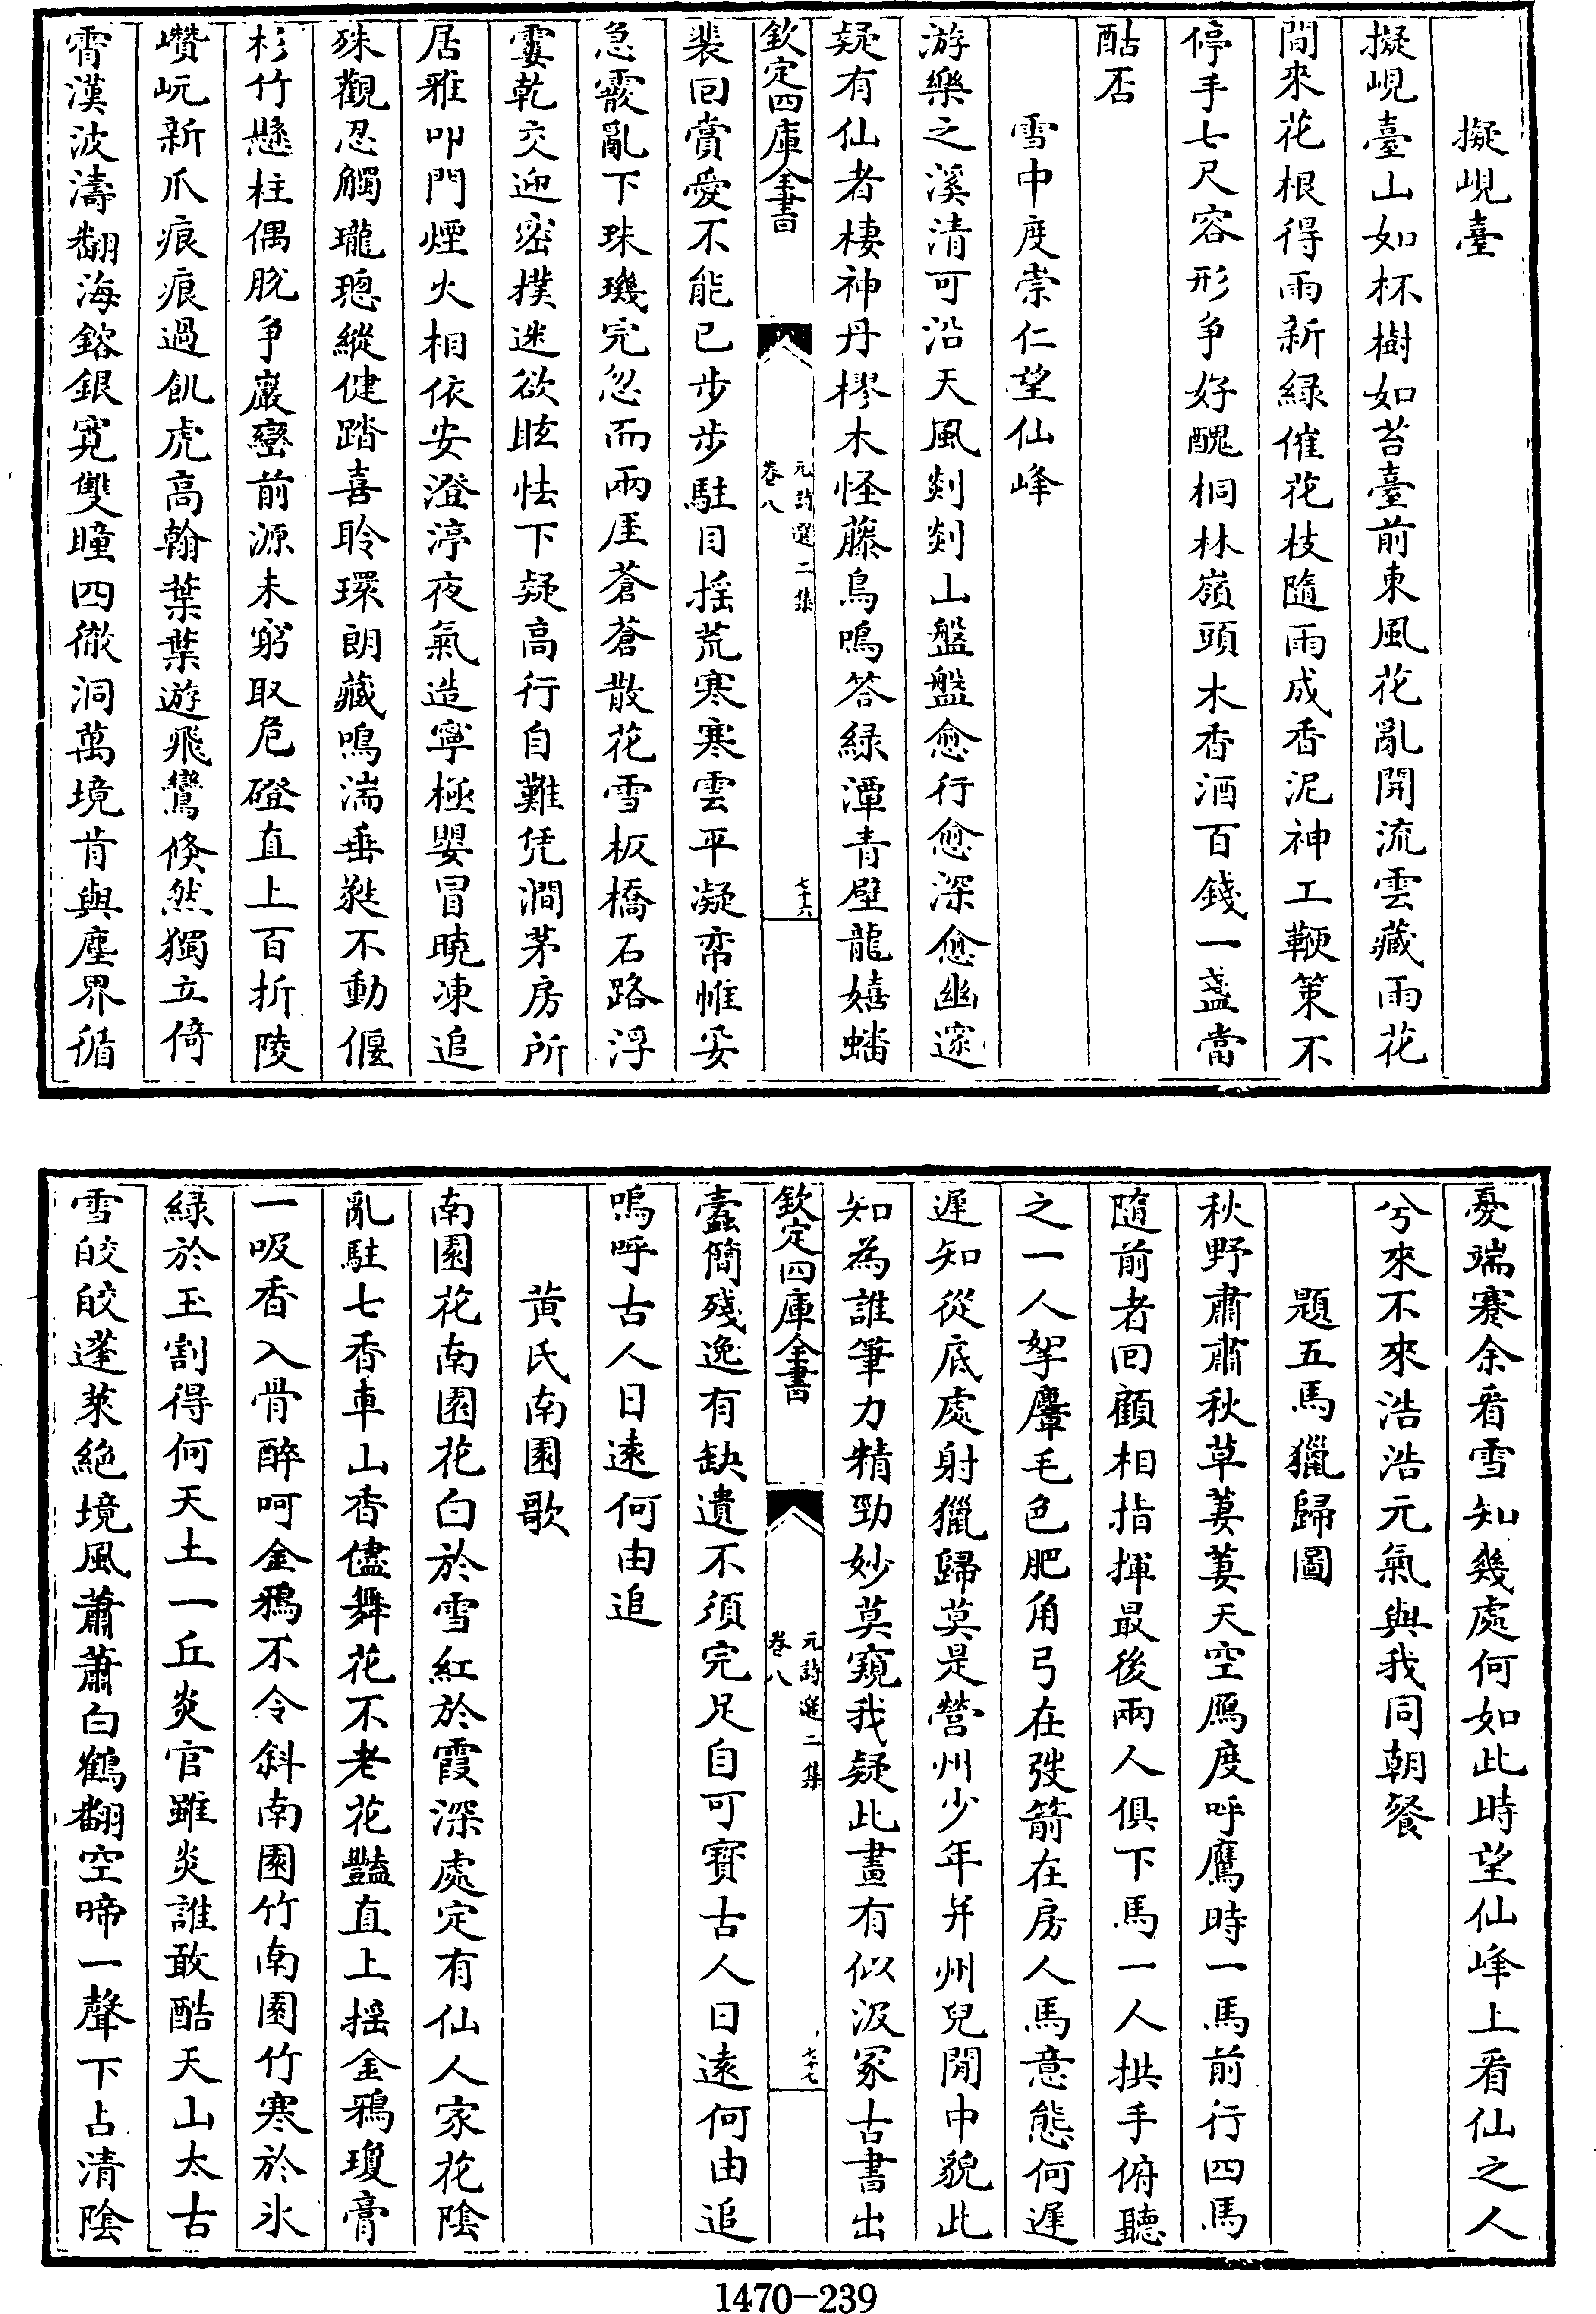 擬峴臺
擬峴臺山如杯樹如苔臺前東風花亂開流雲藏雨花
間來花根得雨新緑催花枝隨雨成香泥神工鞭策不
停手七尺容形争好醜桐林嶺頭木香酒百錢一盞當
酤否
雪中度崇仁望仙峰
游樂之溪清可沿天風剡剡山盤盤愈行愈深愈幽邃
疑有仙者棲神丹樛木怪藤鳥鳴答緑潭青壁龍嬉蟠
欽定四庫全書
元詩選二集
卷八
七十六
裴回賞愛不能已步步駐目摇荒寒寒雲平凝帟帷妥
急霰亂下珠璣完忽而兩厓蒼蒼散花雪板橋石路浮
霎乾交迎密撲迷欲眩怯下疑高行自難凭澗茅房所
居雅叩門煙火相依安澄渟夜氣造寧極嬰冒曉凍追
殊觀忍觸瓏璁縱健踏喜聆環朗藏鳴湍垂蕤不動偃
杉竹懸柱偶脱争巖巒前源未窮取危磴直上百折陵
巑岏新爪痕痕過飢虎高翰葉葉遊飛鸞倏然獨立倚
霄漢波濤翻海鎔銀寛雙瞳四徹洞萬境肯與塵界循
憂端蹇余看雪知幾處何如此時望仙峰上看仙之人
兮來不來浩浩元氣與我同朝餐
題五馬獵歸圖
秋野肅肅秋草萋萋天空鴈度呼鷹時一馬前行四馬
隨前者回顧相指揮最後兩人俱下馬一人拱手俯聽
之一人挐麞毛色肥角弓在弢箭在房人馬意態何遲
遲知從底處射獵歸莫是營州少年并州兒閒中貌此
知為誰筆力精勁妙莫窺我疑此畫有似汲冢古書出
欽定四庫全書
元詩選二集
卷八
七十七
蠧簡殘逸有缺遺不須完足自可寳古人日逺何由追
嗚呼古人日逺何由追
黄氏南園歌
南園花南園花白於雪紅於霞深處定有仙人家花陰
亂駐七香車山香儘舞花不老花豔直上摇金鴉瓊膏
一吸香入骨醉呵金鴉不令斜南園竹南園竹寒於氷
緑於玉割得何天土一丘炎官雖炎誰敢酷天山太古
雪皎皎蓬萊絶境風蕭蕭白鶴翻空啼一聲下占清陰
1470－239